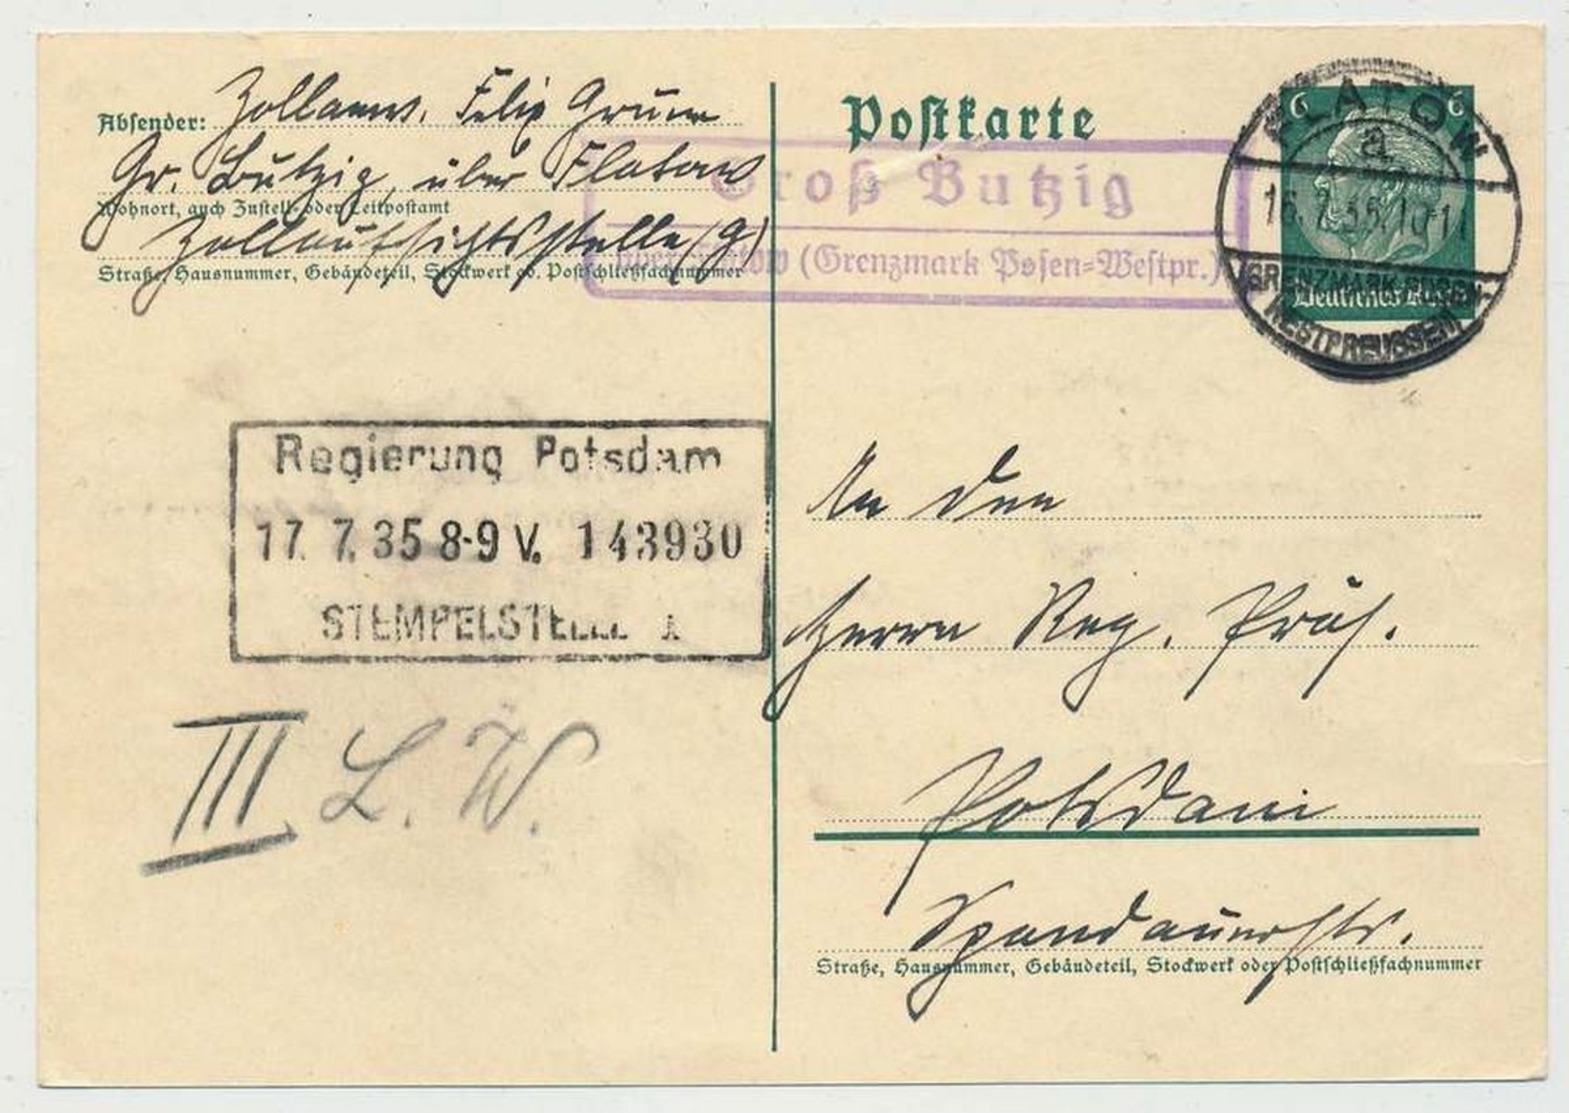 Absender: Zollanw. Felix Grunn
Gr. Butzig, über Flatow
Wohnort, auch Zustell- oder Leitpostamt
Zollaufsichtsstelle (G)
Straße, Hausnummer, Gebäudeteil, Stockwerk od. Postschließfachnummer
Postkarte
Groß Butzig
über Flatow (Grenzmark Posen-Westpr.)
6 6
Deutsches Reich
FLATOW
a
16.7.35.10-11
(GRENZMARK POSEN-
WESTPREUSSEN)
Regierung Potsdam
17. 7. 35 8-9 V. 143930
STEMPELSTELLE 1
III L. W.
An den
Herrn Reg. Präs.
Potsdam
Spandauerstr.
Straße, Hausnummer, Gebäudeteil, Stockwerk oder Postschließfachnummer